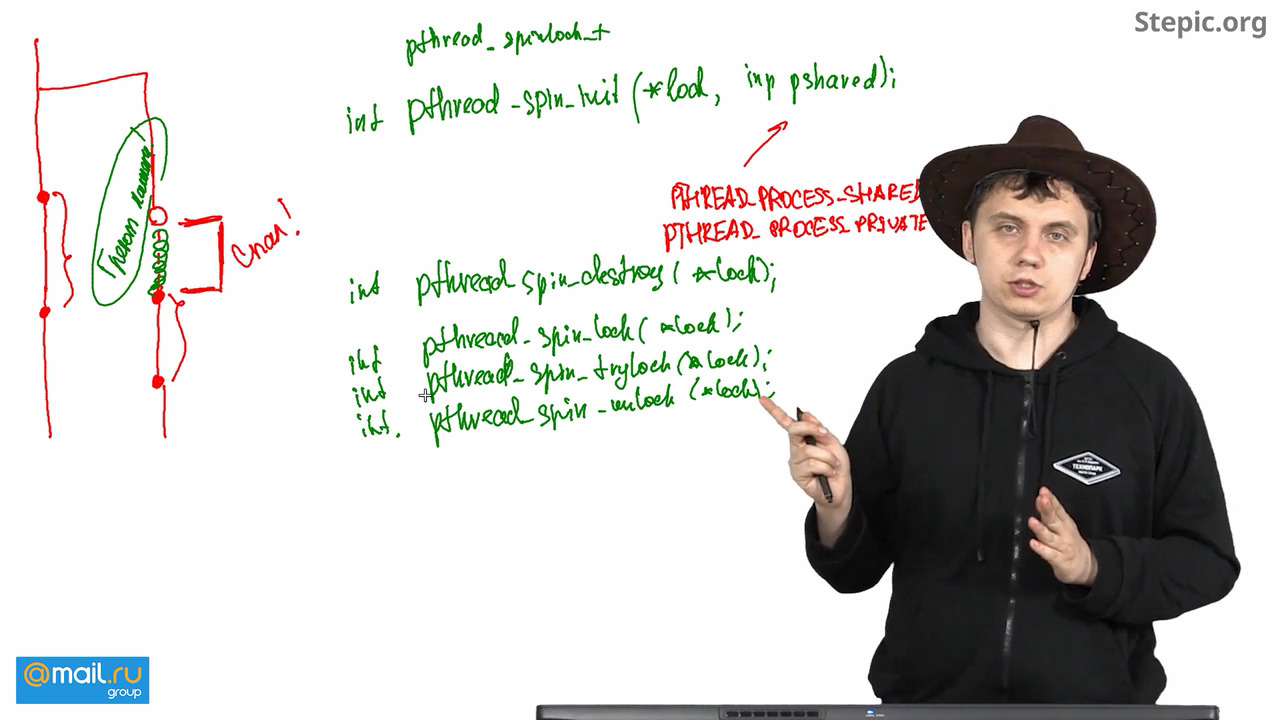 Stepic.org
pthread_spinlock_t
int pthread_spin_init (*lock, inp pshared);
PTHREAD_PROCESS_SHARED
PTHREAD_PROCESS_PRIVATE
Спал!
int pthread_spin_destroy (*lock);
int pthread_spin_lock (*lock);
int pthread_spin_trylock (*lock);
int. pthread_spin_unlock (*lock);
ТЕХНОПАРК
@mail.ru
group